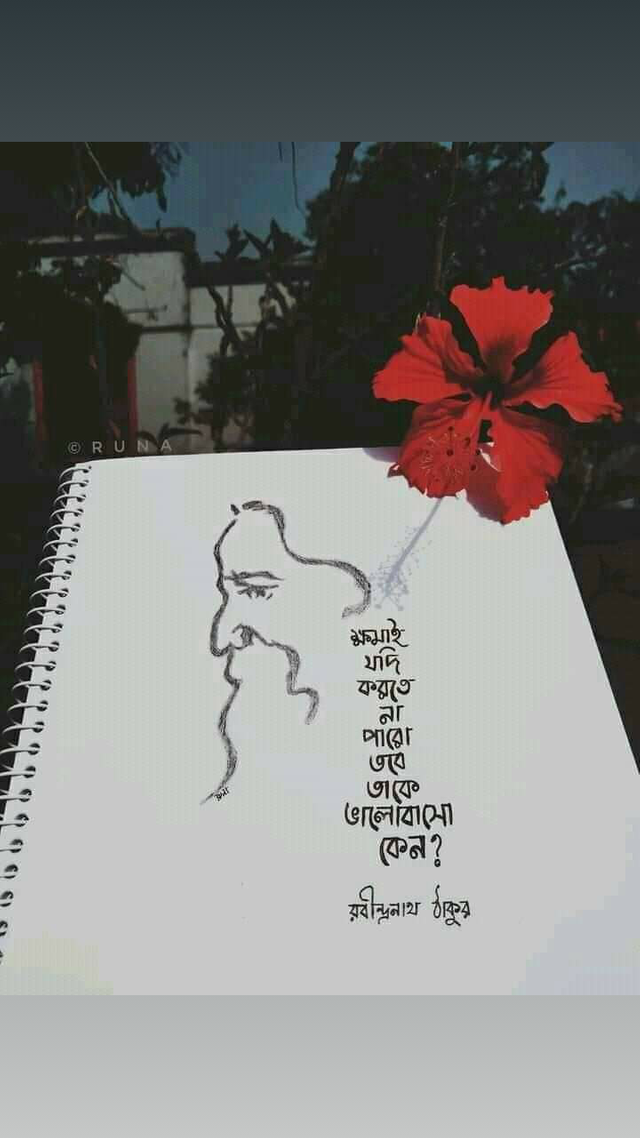 © RUNA
ক্ষমাই
যদি
করতে
না
পারো
তবে
তাকে
ভালোবাসো
কেন?
রবীন্দ্রনাথ ঠাকুর